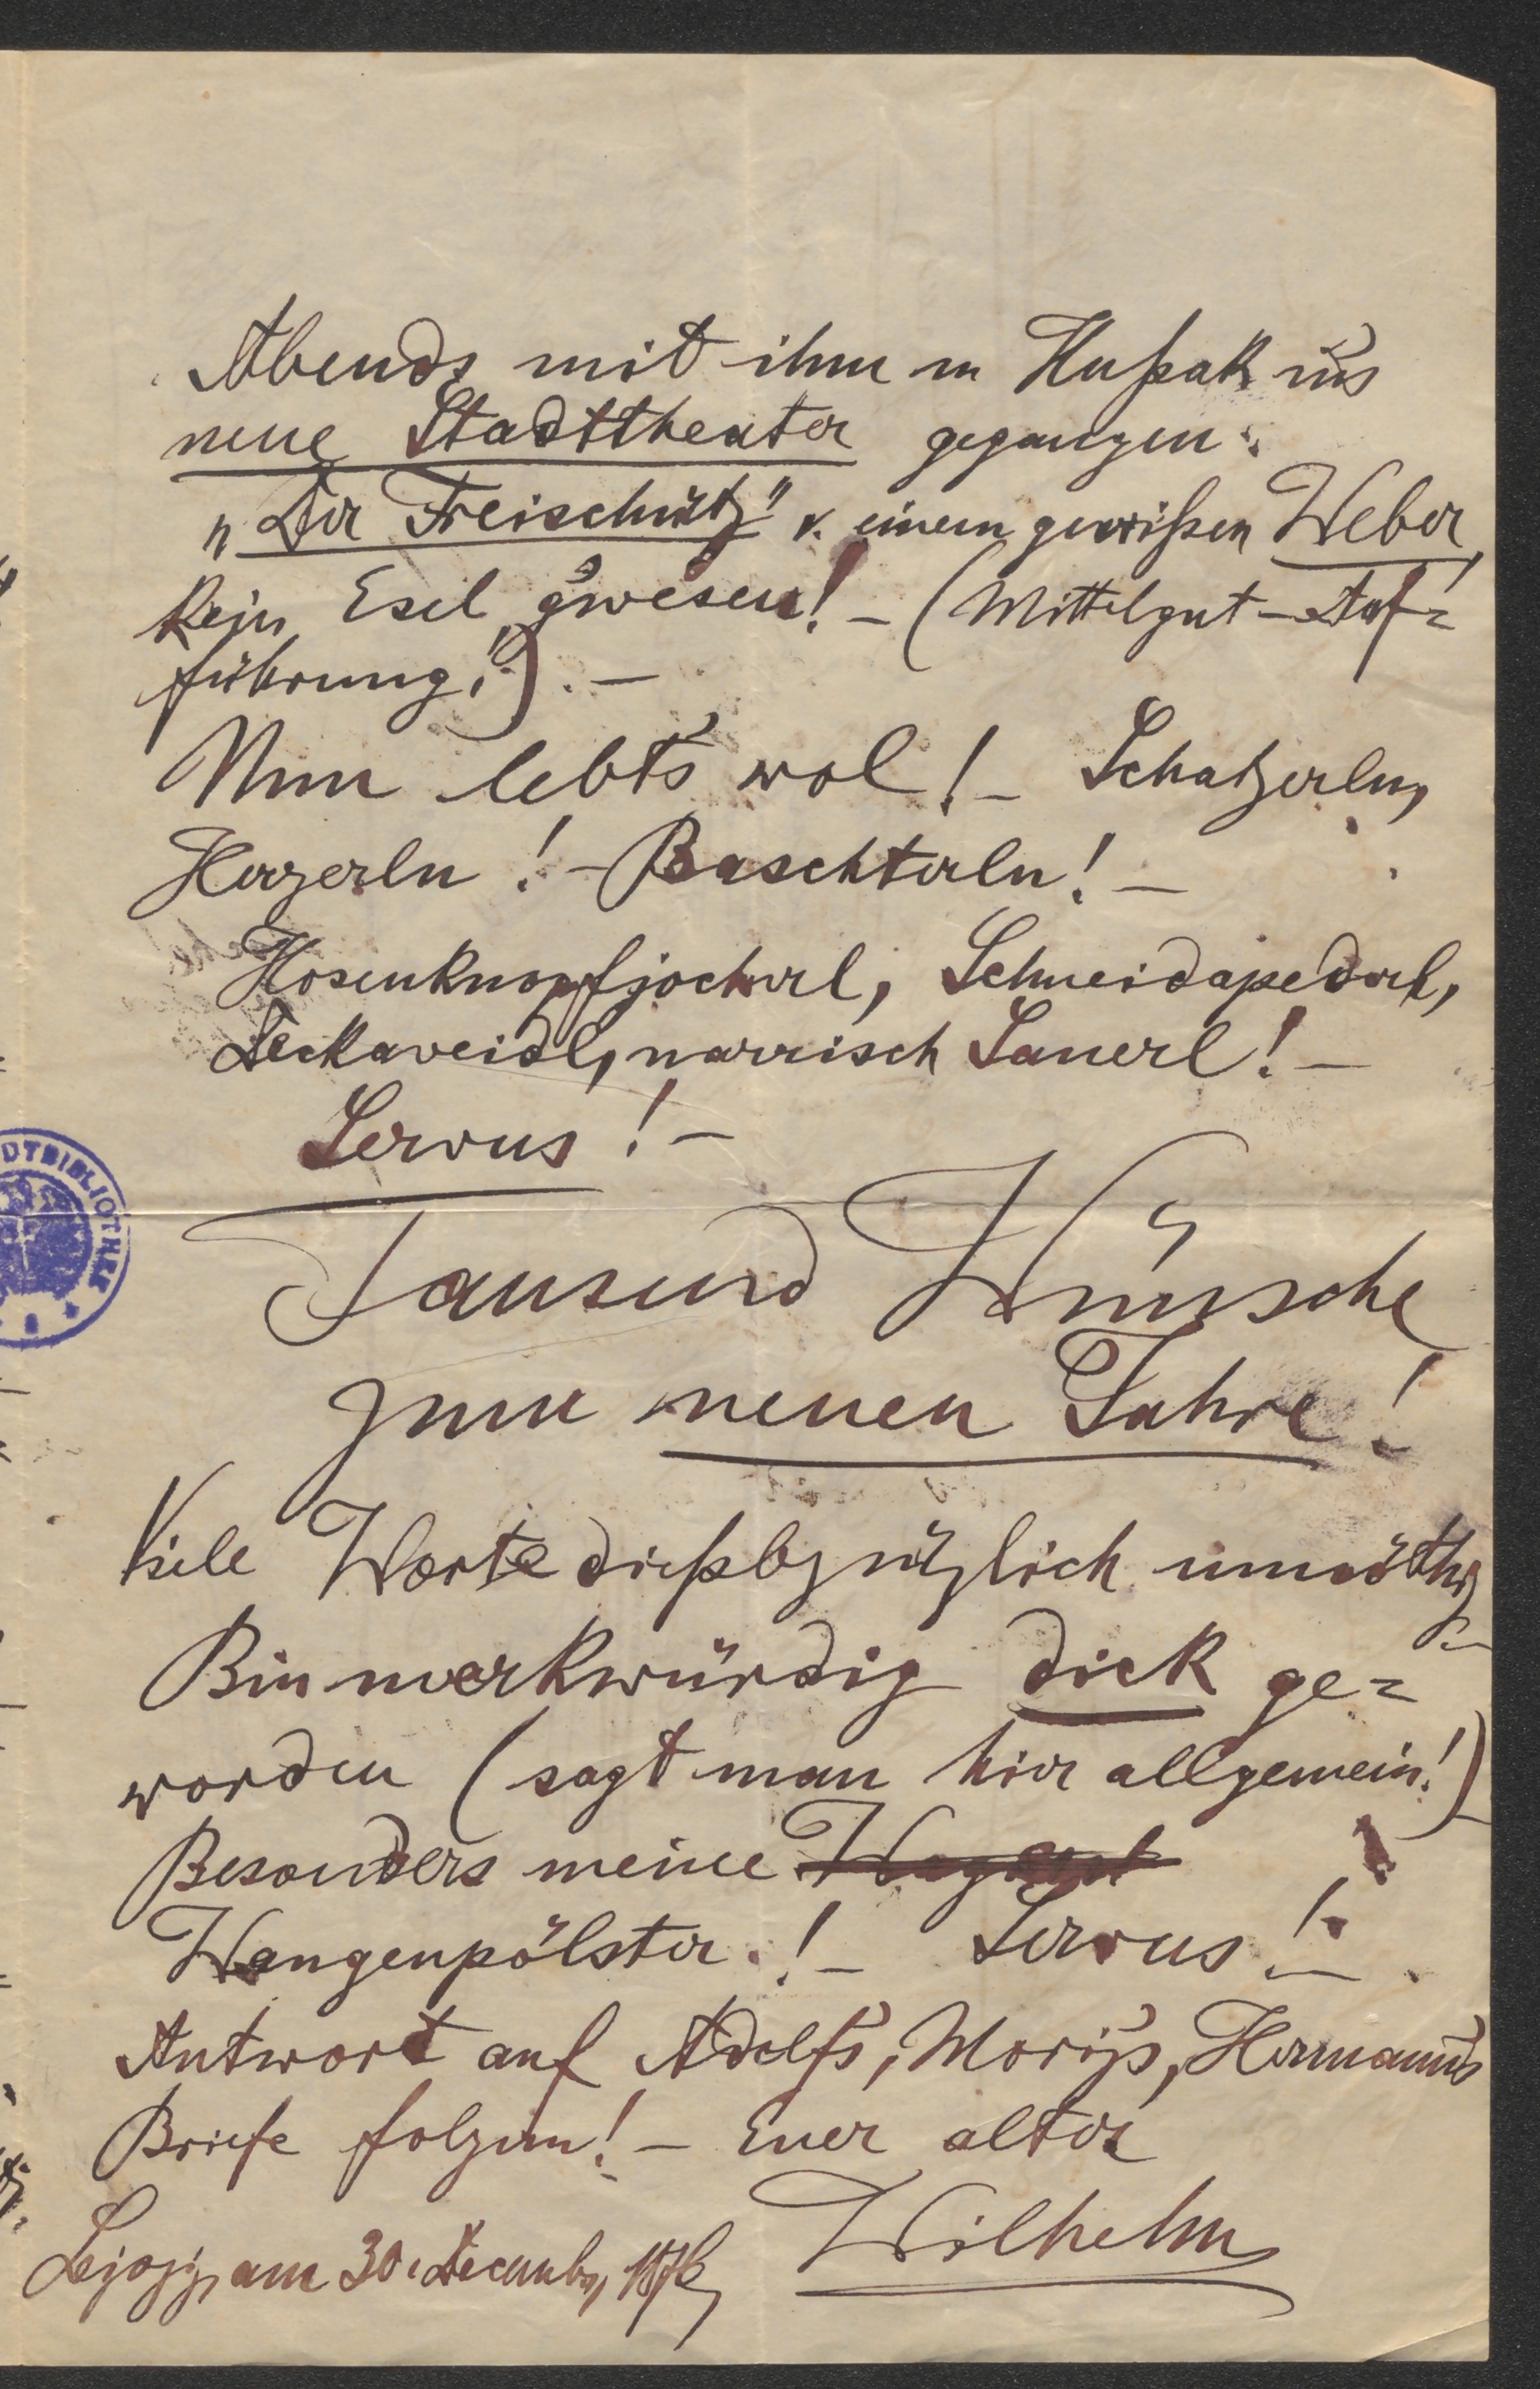 Abends mit ihm u Hußak in's
neue Stadttheater gegangen.
„Der Freischütz" v. einem gewißen Weber
Kein Esel g'wesen! – (Mittelgut – Auf=
führung!). –
Nun lebt's wol! – Schatzerln,
Herzerln! – Baschterln! –
Hosenknopfjocherl,
narrisch Sauerl! –
Servus! –
DTBIBLIOTHEK
Tausend Wünsche
zum neuen Jahre!
Viele Worte dießbzüglich unnöthig
Bin merkwürdig dick ge=
worden (sagt man hier allgemein!)
Besonders meine
Wangenpölster! – Servus! –
Antwort auf Adolf's, Moriz's, Hermann's
Briefe folgen! – Euer alter
Wilhelm
am 30. Decemb, 1876